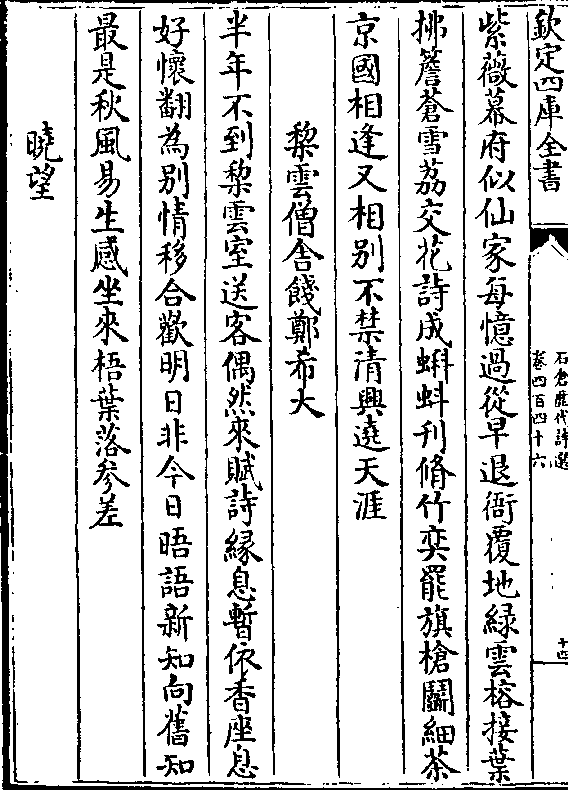 欽定四庫全書
石倉歷代詩選
卷四百四十六
十四
紫薇幕府似仙家每憶過從早退衙覆地緑雲榕接葉
拂簷蒼雪荔交花詩成蝌蚪刋脩竹奕罷旗槍鬭細茶
京國相逢又相别不禁清興遶天涯
棃雲僧舎餞鄭希大
半年不到棃雲室送客偶然來賦詩緣息暫依香座息
好懷翻為别情移合歡明日非今日晤語新知向舊知
最是秋風易生感坐來梧葉落參差
曉望